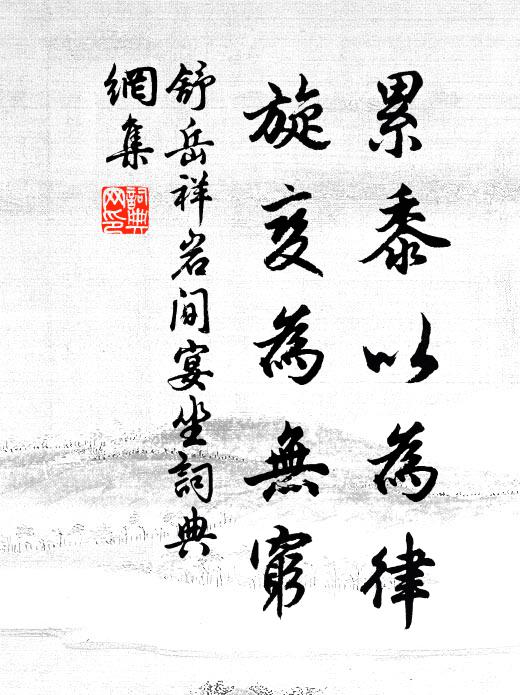 累黍以為律
旋变為無窮
舒岳祥岩间宴坐詞典
網集
詞典
网印